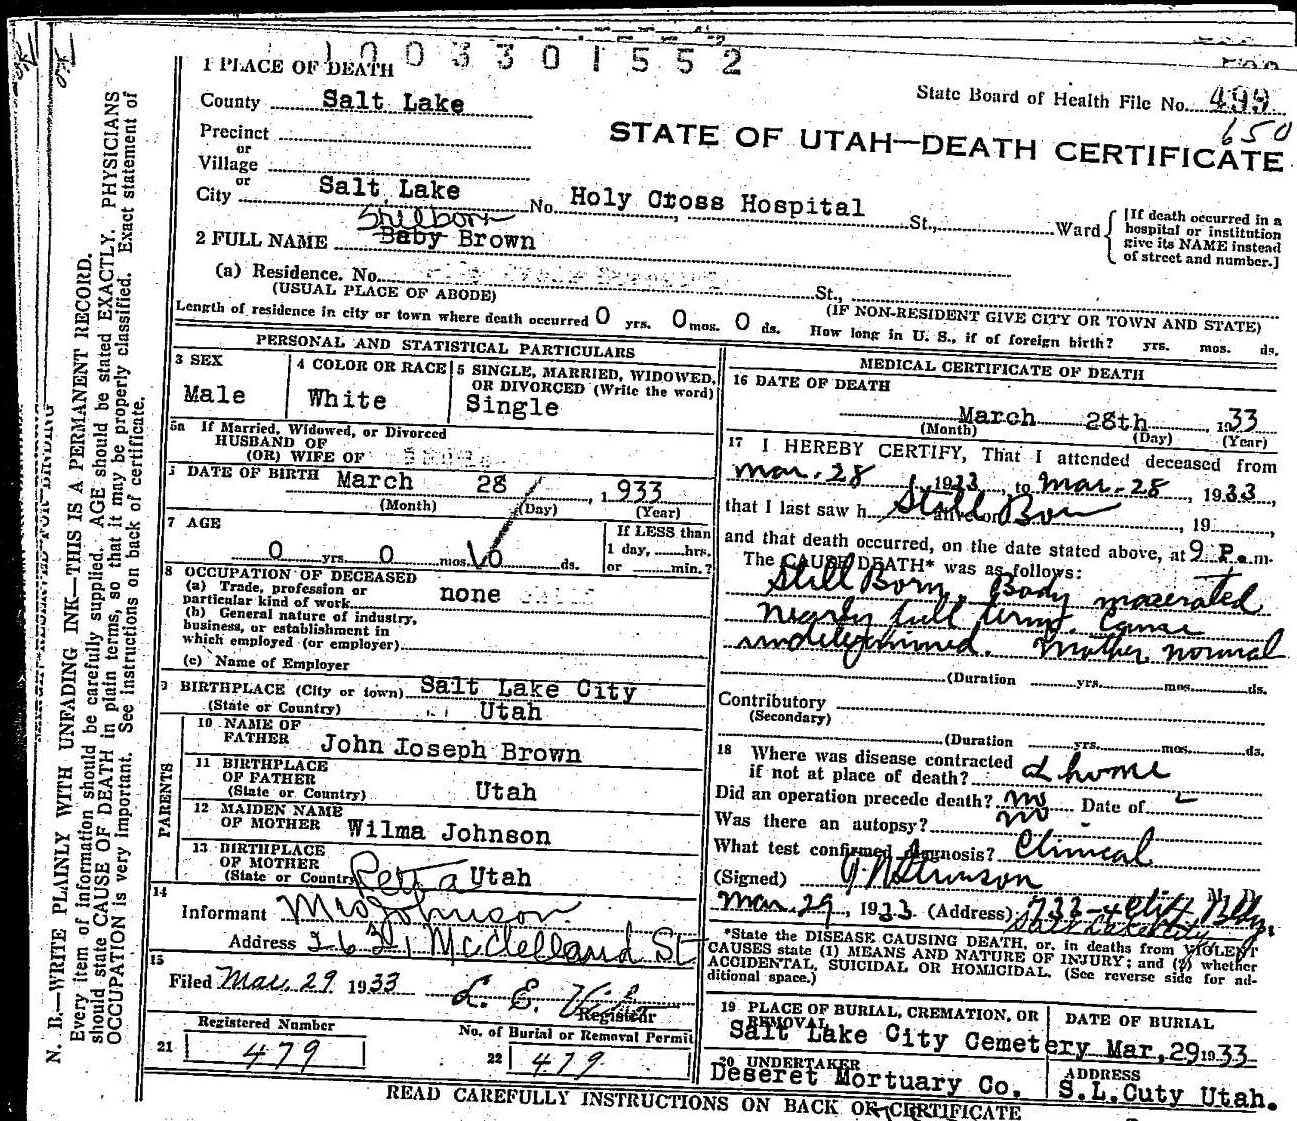 1003301552
1 PLACE OF DEATH
State Board of Health File No. 499
650
County Salt Lake
STATE OF UTAH—DEATH CERTIFICATE
Precinct
or
Village
or
City Salt Lake No. Holy Cross Hospital St., Ward
[If death occurred in a
hospital or institution
give its NAME instead
of street and number.]
Stillborn
2 FULL NAME Baby Brown
(a) Residence. No. St.,
(USUAL PLACE OF ABODE) (IF NON-RESIDENT GIVE CITY OR TOWN AND STATE)
Length of residence in city or town where death occurred 0 yrs. 0 mos. 0 ds. How long in U. S., if of foreign birth? yrs. mos. ds.
PERSONAL AND STATISTICAL PARTICULARS
3 SEX
Male
4 COLOR OR RACE
White
5 SINGLE, MARRIED, WIDOWED,
OR DIVORCED (Write the word)
Single
5a If Married, Widowed, or Divorced
HUSBAND OF
(OR) WIFE OF
DATE OF BIRTH March 28, 1933
(Month) (Day) (Year)
7 AGE
0 yrs. 0 mos. 0 ds.
If LESS than
1 day, hrs.
or min.?
8 OCCUPATION OF DECEASED
(a) Trade, profession or
particular kind of work none
(b) General nature of industry,
business, or establishment in
which employed (or employer)
(c) Name of Employer
BIRTHPLACE (City or town) Salt Lake City
(State or Country) Utah
PARENTS
10 NAME OF
FATHER John Ioseph Brown
11 BIRTHPLACE
OF FATHER
(State or Country) Utah
12 MAIDEN NAME
OF MOTHER Wilma Johnson
13 BIRTHPLACE
OF MOTHER
(State or Country) Utah
14
Informant Mrs Johnson
Address McClelland St
15
Filed Mar, 29 1933 L. E.
Registrar
Registered Number
21 479
No. of Burial or Removal Permit
22 479
MEDICAL CERTIFICATE OF DEATH
16 DATE OF DEATH
March 28th, 1933
(Month) (Day) (Year)
17 I HEREBY CERTIFY, That I attended deceased from
Mar. 28, 1933, to Mar. 28, 1933,
that I last saw h alive on Still Born, 19,
and that death occurred, on the date stated above, at 9 P.m.
The CAUSE DEATH* was as follows:
Still Born. Body macerated
nearly full term. Cause
undetermined. Mother normal
(Duration yrs. mos. ds.
Contributory
(Secondary)
(Duration yrs. mos. ds.
18 Where was disease contracted
if not at place of death? at home
Did an operation precede death? no Date of
Was there an autopsy? no
What test confirmed diagnosis? Clinical
(Signed)
Mar. 29, 1933 (Address) Bldg.
Salt Lake City
*State the DISEASE CAUSING DEATH, or, in deaths from VIOLENT
CAUSES state (1) MEANS AND NATURE OF INJURY; and (2) whether
ACCIDENTAL, SUICIDAL OR HOMICIDAL. (See reverse side for ad-
ditional space.)
19 PLACE OF BURIAL, CREMATION, OR
REMOVAL
Salt Lake City Cemetery
DATE OF BURIAL
Mar, 29 1933
20 UNDERTAKER
Deseret Mortuary Co.
ADDRESS
S.L.Cuty Utah.
READ CAREFULLY INSTRUCTIONS ON BACK OF CERTIFICATE
N. B.—WRITE PLAINLY WITH UNFADING INK—THIS IS A PERMANENT RECORD.
Every item of information should be carefully supplied. AGE should be stated EXACTLY. PHYSICIANS
should state CAUSE OF DEATH in plain terms, so that it may be properly classified. Exact statement of
OCCUPATION is very important. See instructions on back of certificate.